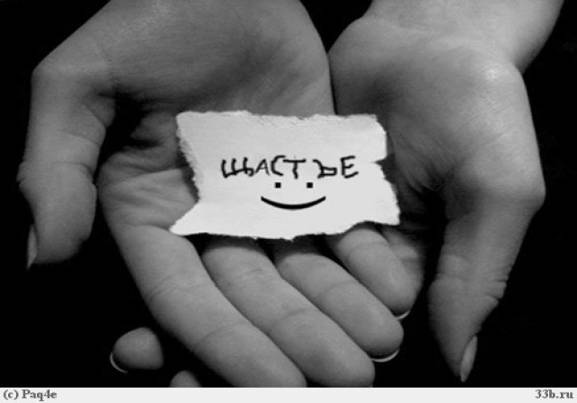 ЩАСТЬЕ
(c) Paq4e
33b.ru